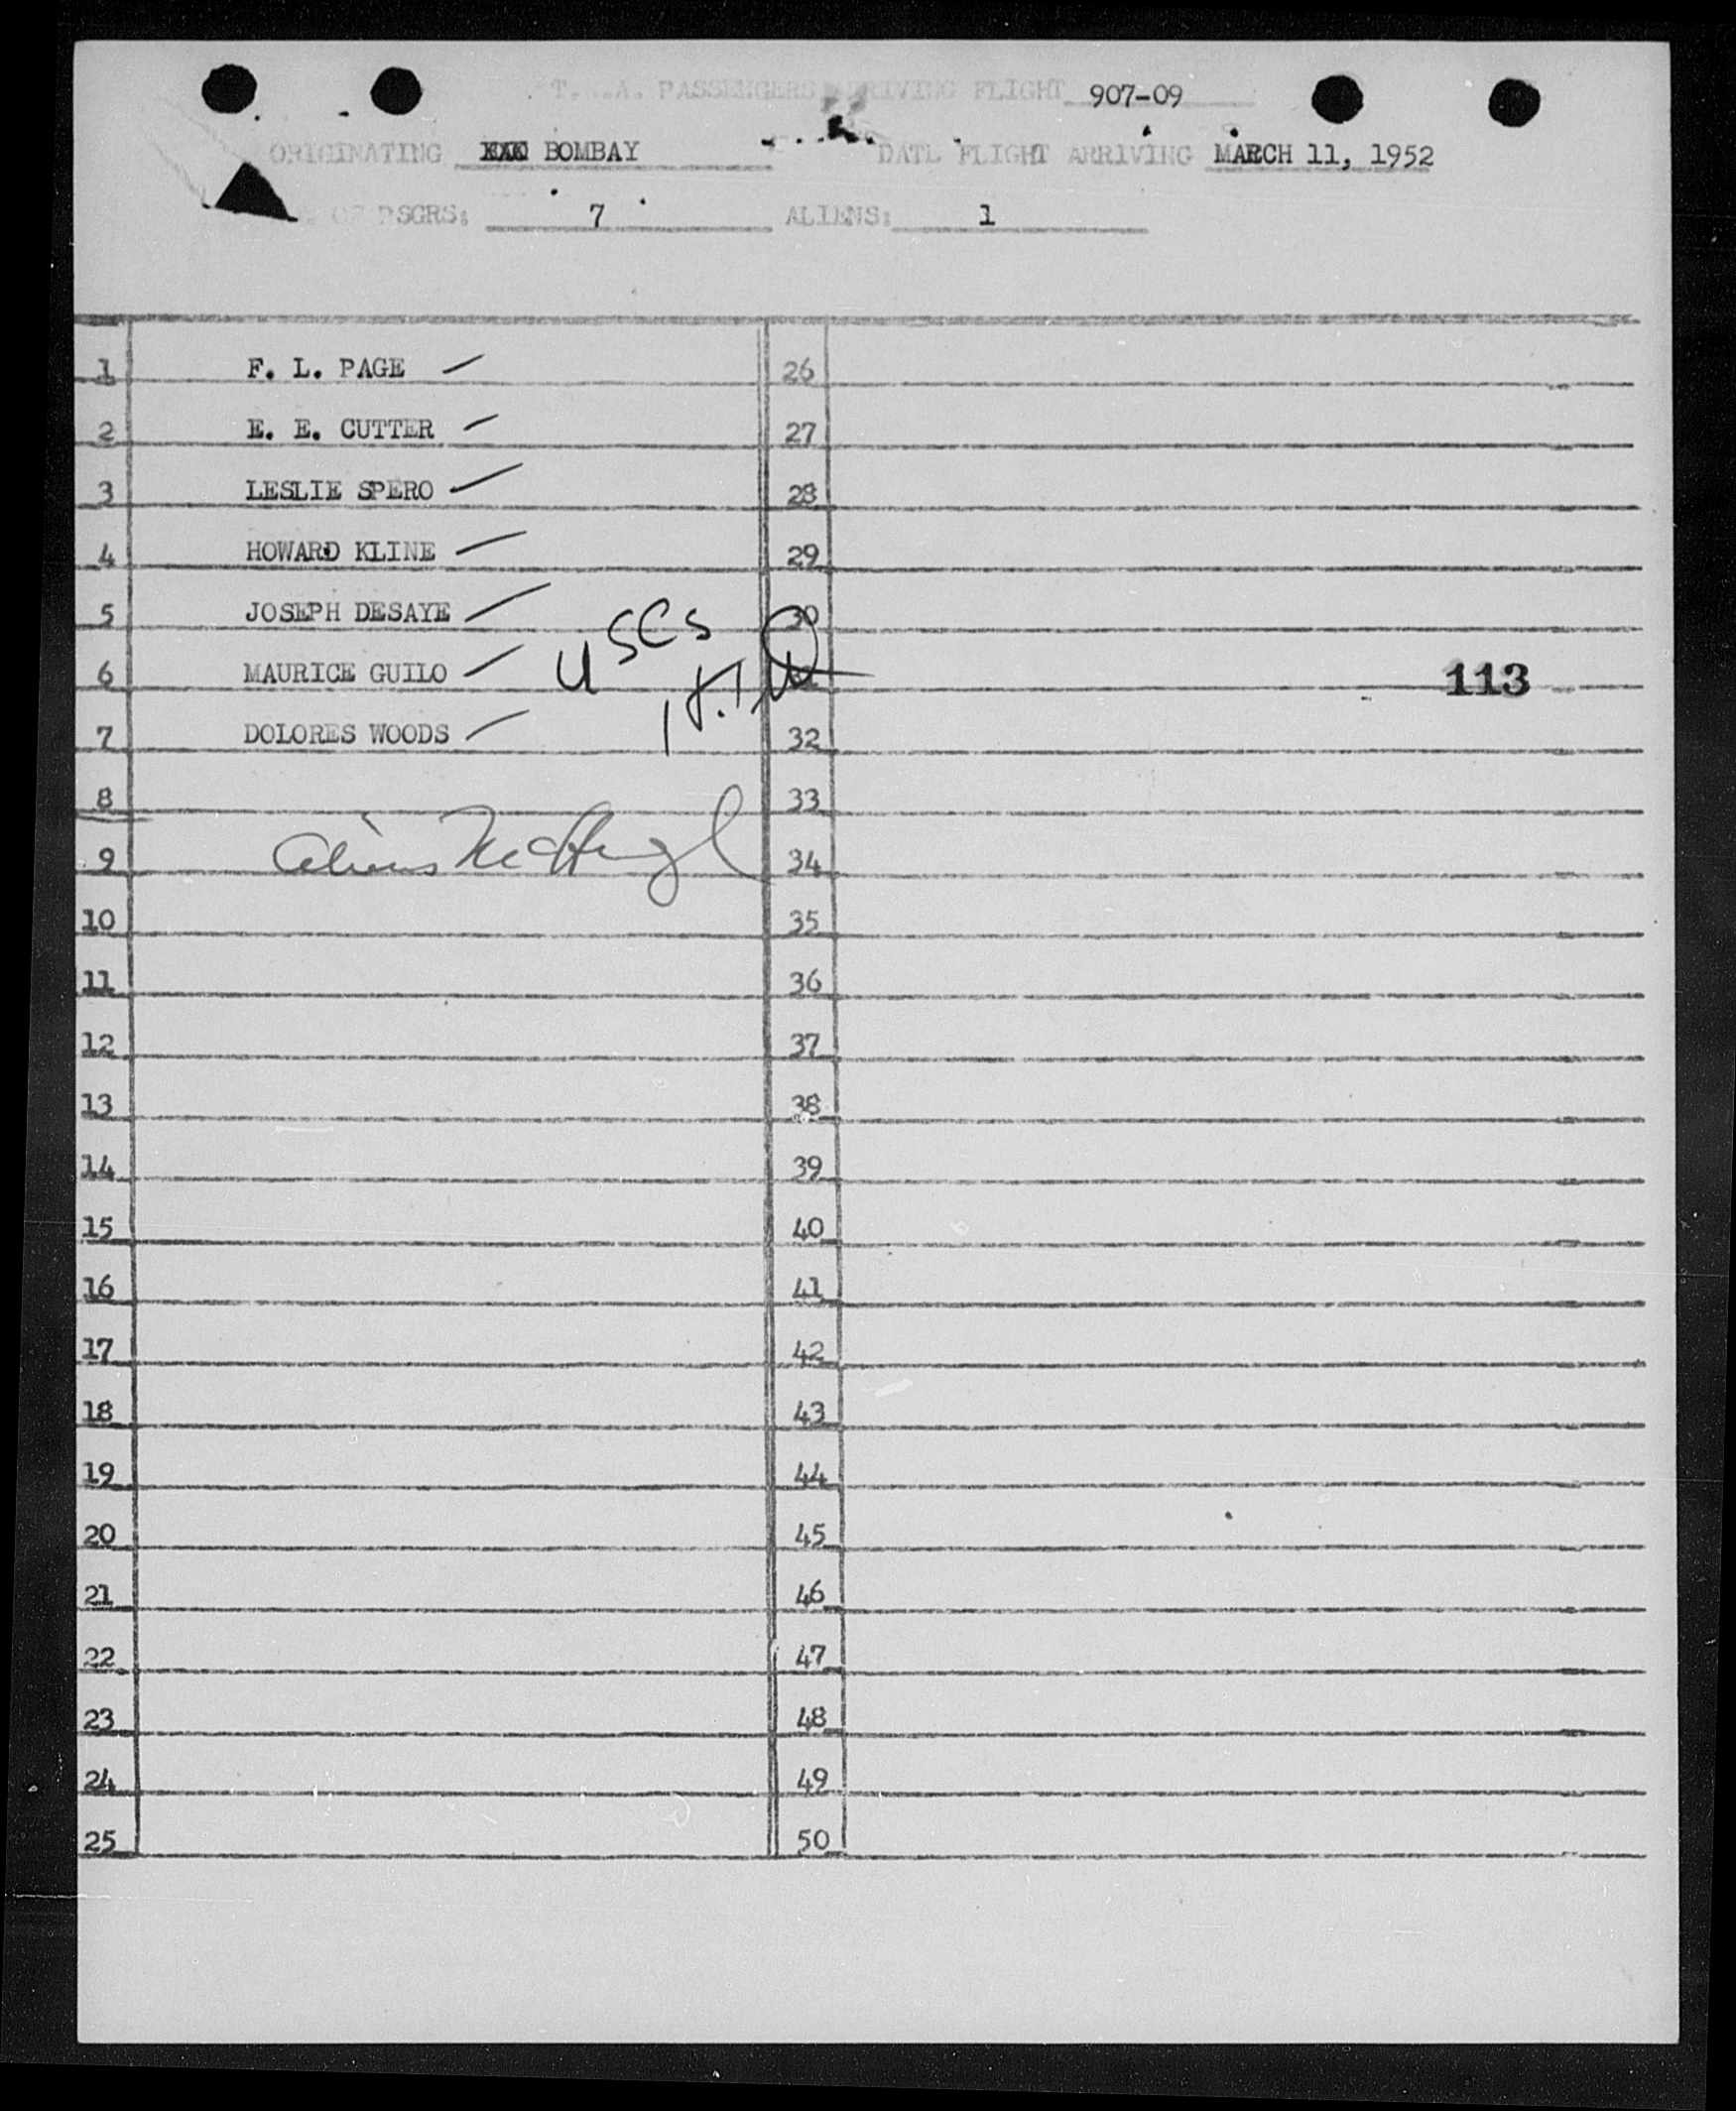 T.W.A. PASSENGERS ARRIVING FLIGHT 907-09
ORIGINATING BOMBAY DATE FLIGHT ARRIVING MARCH 11, 1952
OF PSGRS: 7 ALIENS: 1
1 F. L. PAGE 26
2 E. E. CUTTER 27
3 LESLIE SPERO 28
4 HOWARD KLINE 29
5 JOSEPH DESAYE 30
USCS
6 MAURICE GUILO 113
7 DOLORES WOODS 32
8 33
9 34
10 35
11 36
12 37
13 38
14 39
15 40
16 41
17 42
18 43
19 44
20 45
21 46
22 47
23 48
24 49
25 50